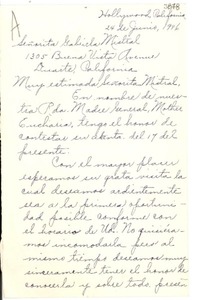 A
Hollywood, California
24 de Junio, 1946
Señorita Gabriela Mistral
1305 Buena Vista Avenue
Duarte, California
Muy estimada Señorita Mistral,
En nombre de nues-
tra Rda. Madre General, Mother
Eucharia, tengo el honor de
contestar su atenta del 17 del
presente.
Con el mayor placer
esperamos su grata visita la
cual deseamos ardientemente
sea a la primera oportuni-
dad posible conforme con
el horario de Ud. No quisiera-
mos incomodarla pero al
mismo tiempo deseamos muy
sinceramente tener el honor de
conocerla y sobre todo, presen